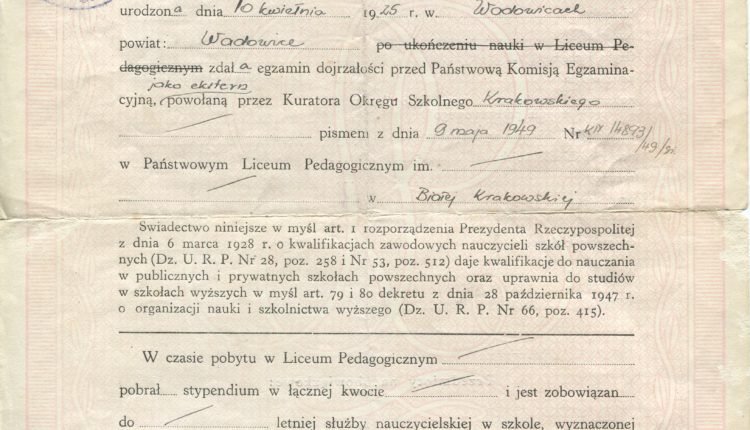 urodzona dnia 10 kwietnia 1925 r. w Wadowicach
powiat: Wadowice po ukończeniu nauki w Liceum Pe-
dagogicznym zdała egzamin dojrzałości przed Państwową Komisją Egzamina-
jako ekstern
cyjną, powołaną przez Kuratora Okręgu Szkolnego Krakowskiego
pismem z dnia 9 maja 1949 Nr KIV 14893/
/49/
w Państwowym Liceum Pedagogicznym im.
w Białej Krakowskiej
Świadectwo niniejsze w myśl art. 1 rozporządzenia Prezydenta Rzeczypospolitej
z dnia 6 marca 1928 r. o kwalifikacjach zawodowych nauczycieli szkół powszech-
nych (Dz. U. R. P. Nr 28, poz. 258 i Nr 53, poz. 512) daje kwalifikacje do nauczania
w publicznych i prywatnych szkołach powszechnych oraz uprawnia do studiów
w szkołach wyższych w myśl art. 79 i 80 dekretu z dnia 28 października 1947 r.
o organizacji nauki i szkolnictwa wyższego (Dz. U. R. P. Nr 66, poz. 415).
W czasie pobytu w Liceum Pedagogicznym
pobrał stypendium w łącznej kwocie i jest zobowiązan
do letniej służby nauczycielskiej w szkole, wyznaczonej